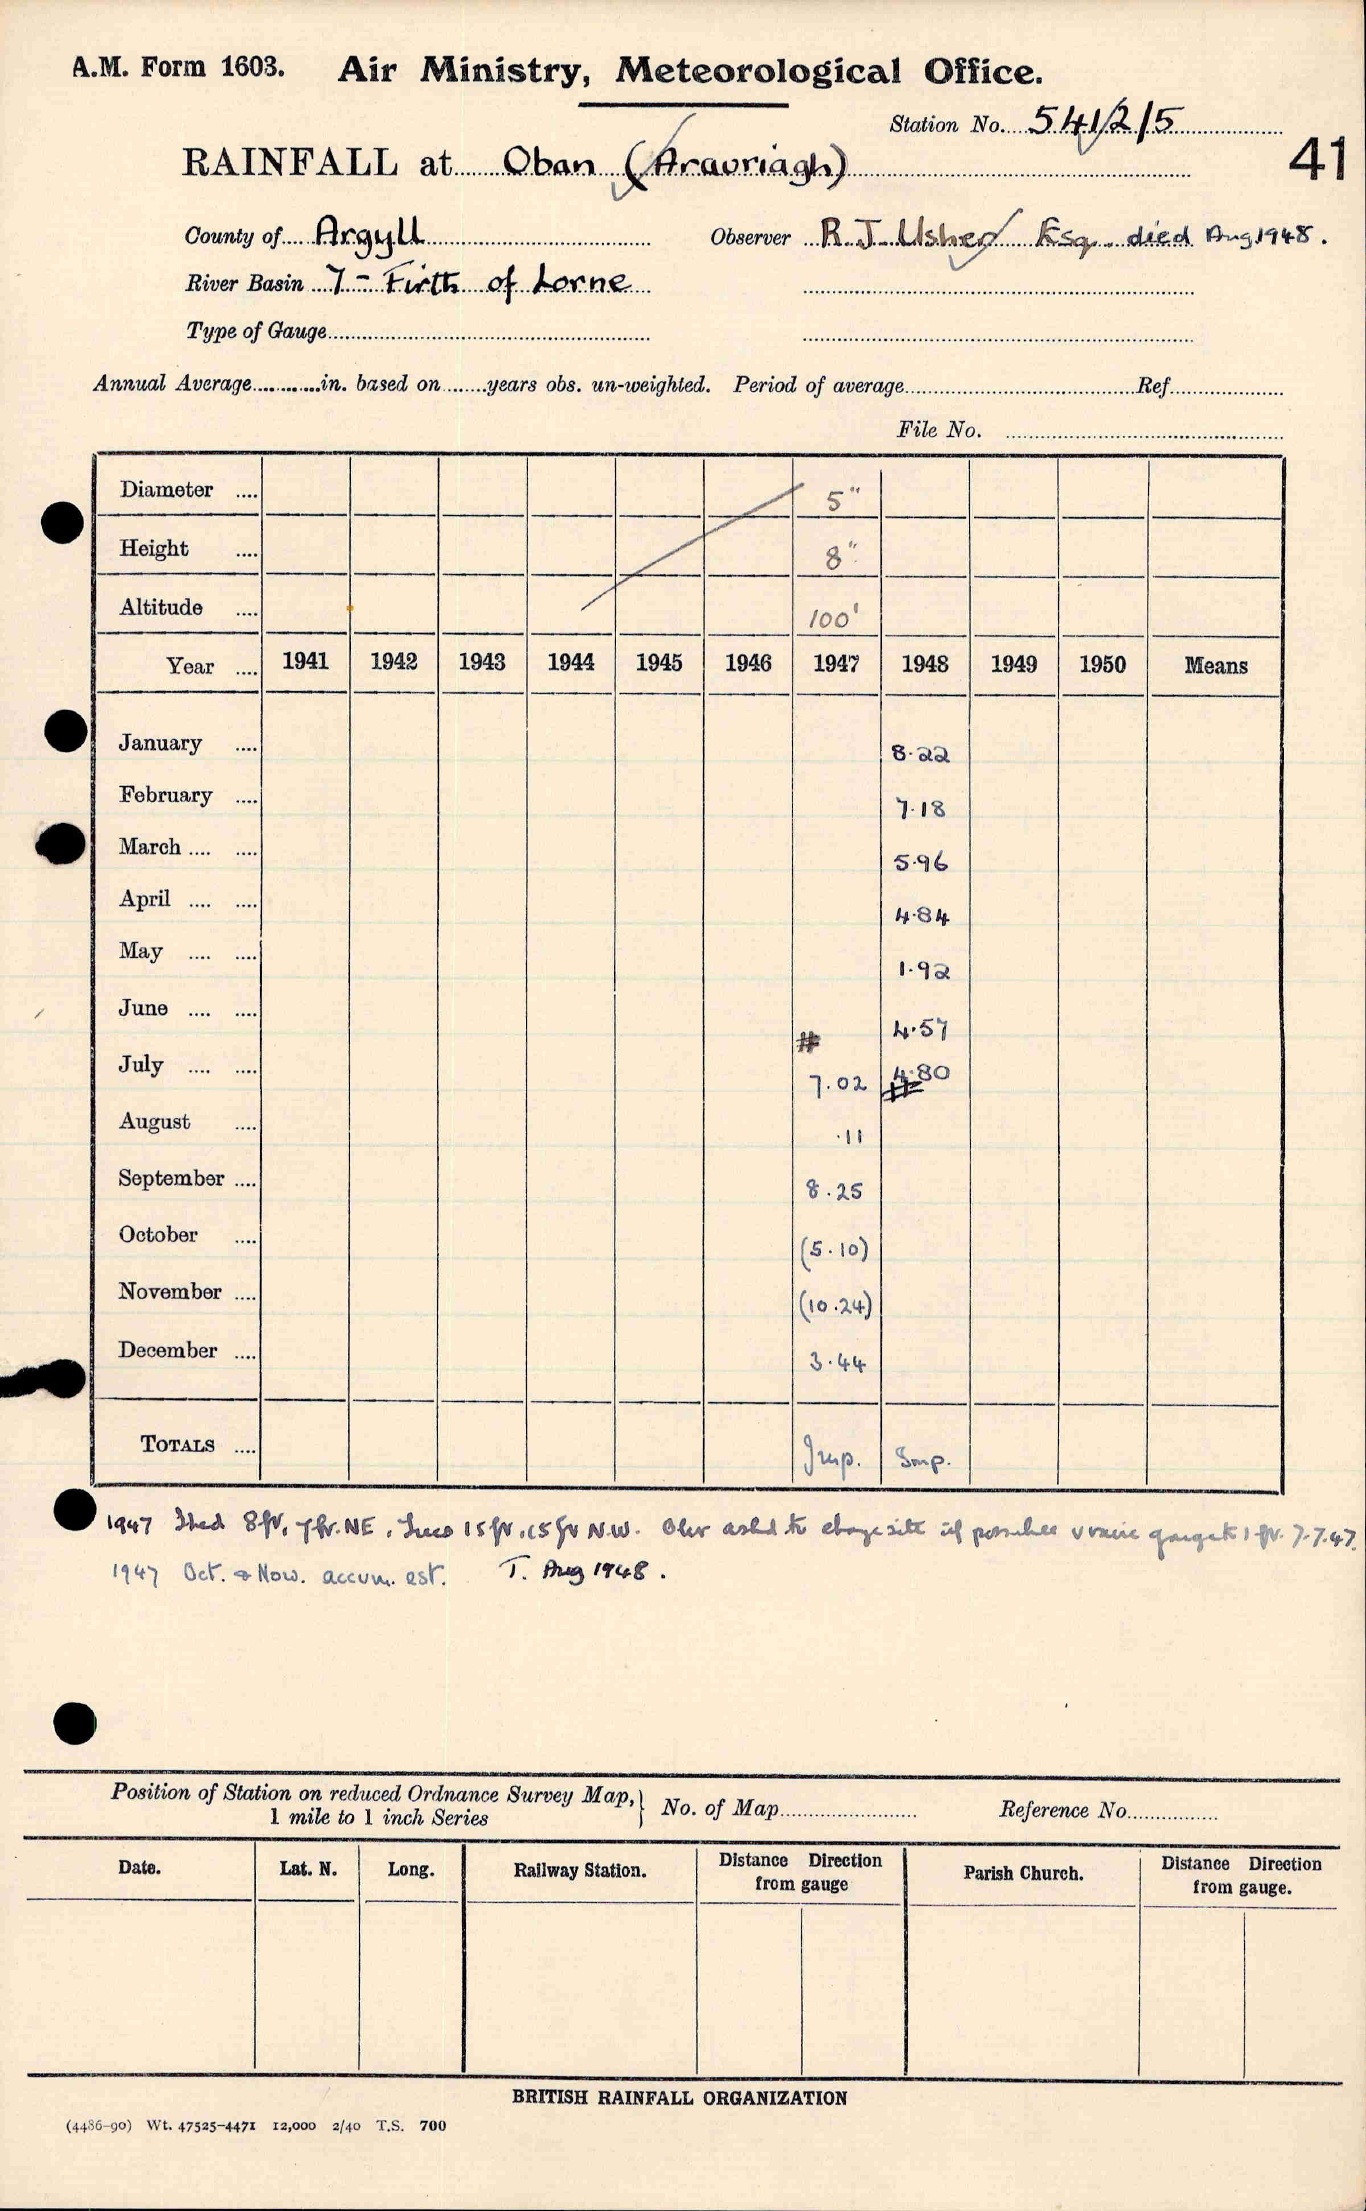 A.M. Form 1603. Air Ministry, Meteorological Office.
Station No. 541/2/5
41
RAINFALL at Oban (Aravriagh)
County of Argyll Observer R. J. Usher Esq. died Aug 1948.
River Basin 7 - Firth of Lorne
Type of Gauge
Annual Average in. based on years obs. un-weighted. Period of average Ref
File No.
Diameter 5"
Height 8"
Altitude 100'
Year 1941 1942 1943 1944 1945 1946 1947 1948 1949 1950 Means
January 8.22
February 7.18
March 5.96
April 4.84
May 1.92
June 4.57
July # 7.02 4.80 #
August .11
September 8.25
October (5.10)
November (10.24)
December 3.44
TOTALS Imp. Imp.
1947 Shed 8 ft. 7 ft. NE. Trees 15 ft. 15 ft N.W. Obr asked to change site if possible gauge to 1 ft. 7.7.47.
1947 Oct. & Nov. accum. est. T. Aug 1948.
Position of Station on reduced Ordnance Survey Map, 1 mile to 1 inch Series } No. of Map Reference No.
Date. Lat. N. Long. Railway Station. Distance Direction from gauge Parish Church. Distance Direction from gauge.
BRITISH RAINFALL ORGANIZATION
(4486-90) Wt. 47525-4471 12,000 2/40 T.S. 700